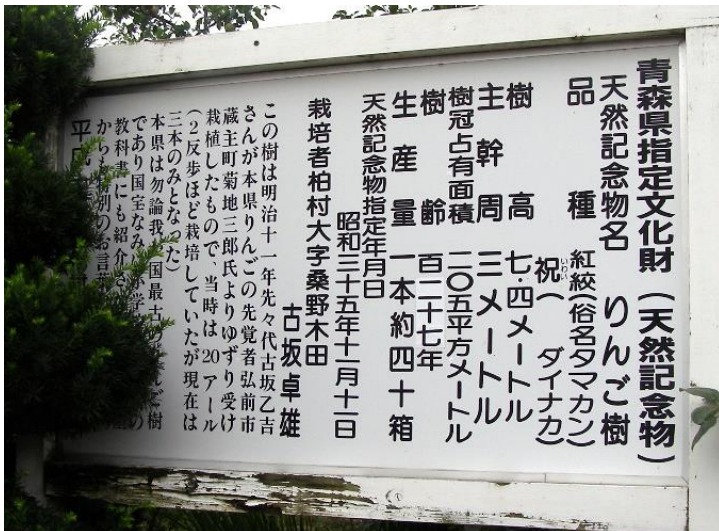 青森県指定文化財(天然記念物)
天然記念物名 りんご樹
品種 紅絞(俗名タマカン)
祝(いわい)(ダイナカ)
樹高 七・四メートル
主幹周 三メートル
樹冠占有面積 二〇五平方メートル
樹齢 百二十七年
生産量 一本約四十箱
天然記念物指定年月日
昭和三十五年十一月十一日
栽培者柏村大字桑野木田
古坂卓雄
この樹は明治十一年先々代古坂乙吉
さんが本県りんごの先覚者弘前市
蔵主町菊地三郎氏よりゆずり受け
栽植したもので、当時は20アール
(2反歩ほど栽培していたが現在は
三本のみとなった)
本県は勿論我が国最古のりんご樹
であり国宝なみに小学の
教科書にも紹介さ
からも特別のお言葉
平成